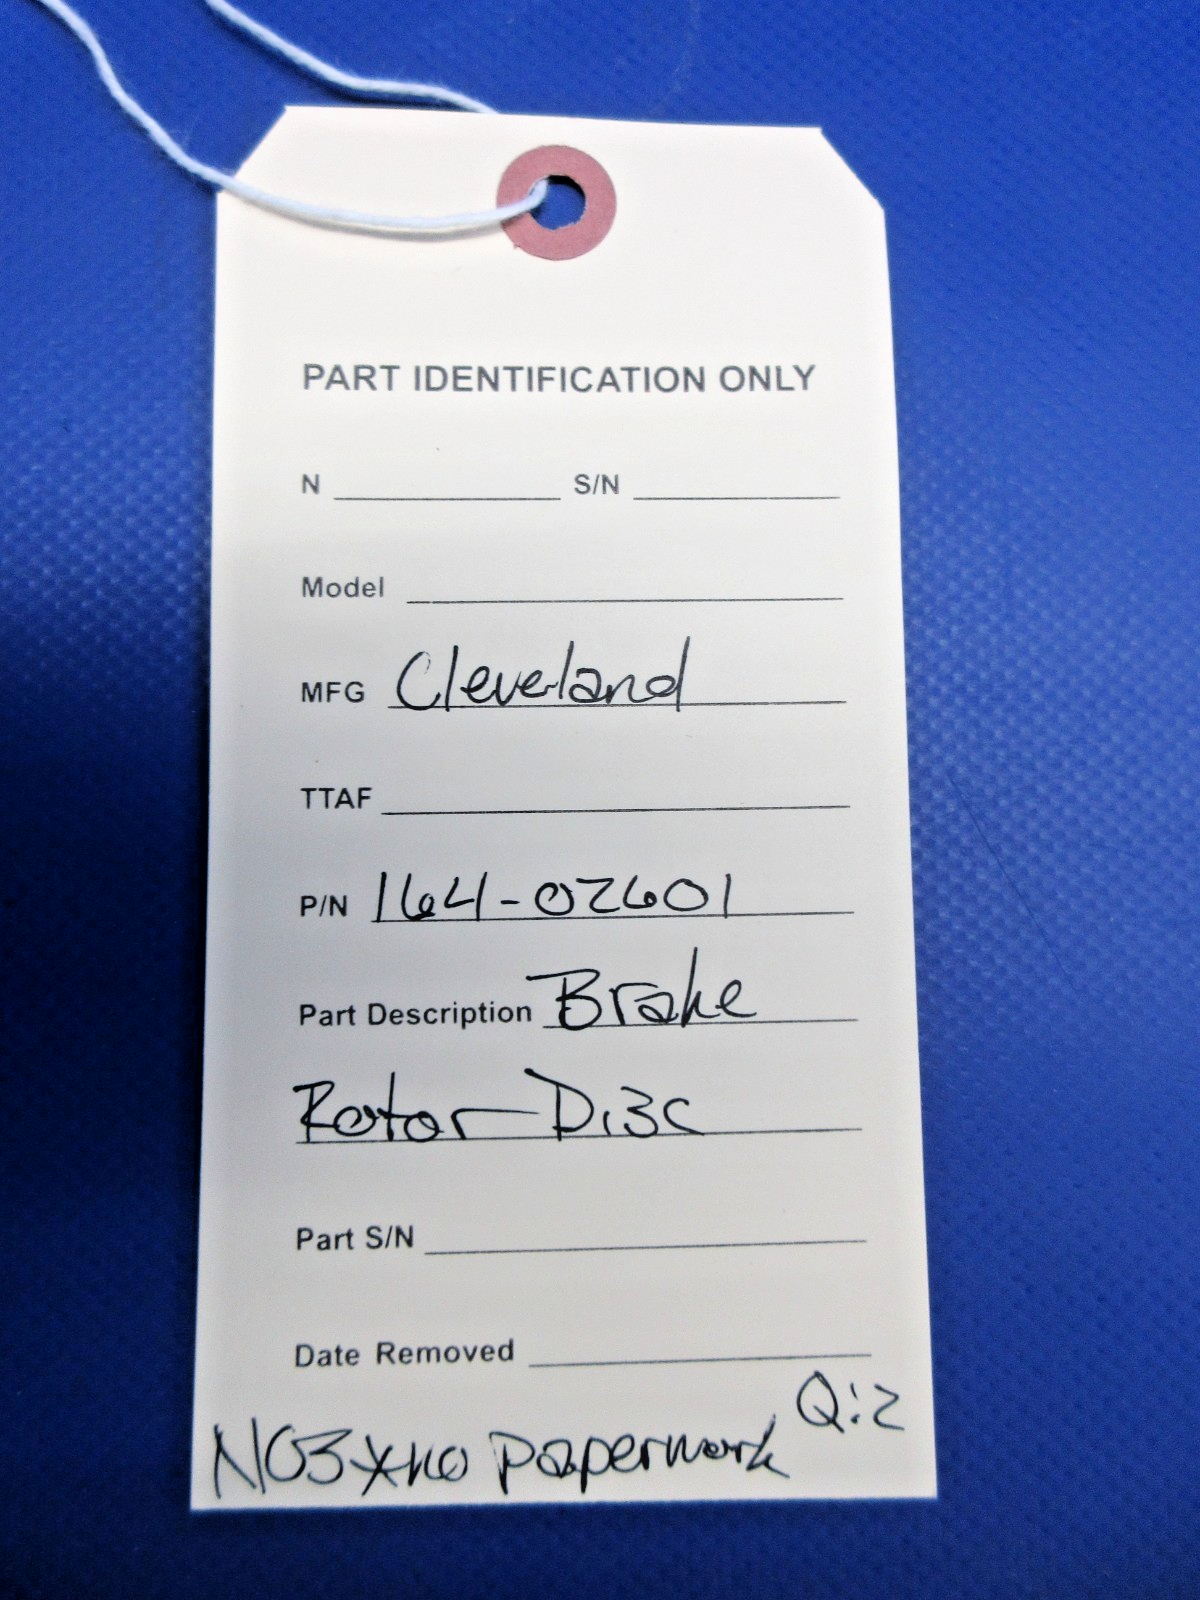 PART IDENTIFICATION ONLY
N S/N
Model
MFG Cleveland
TTAF
P/N 164-02601
Part Description Brake
Rotor Disc
Part S/N
Date Removed
Q:2
NOS *no paperwork